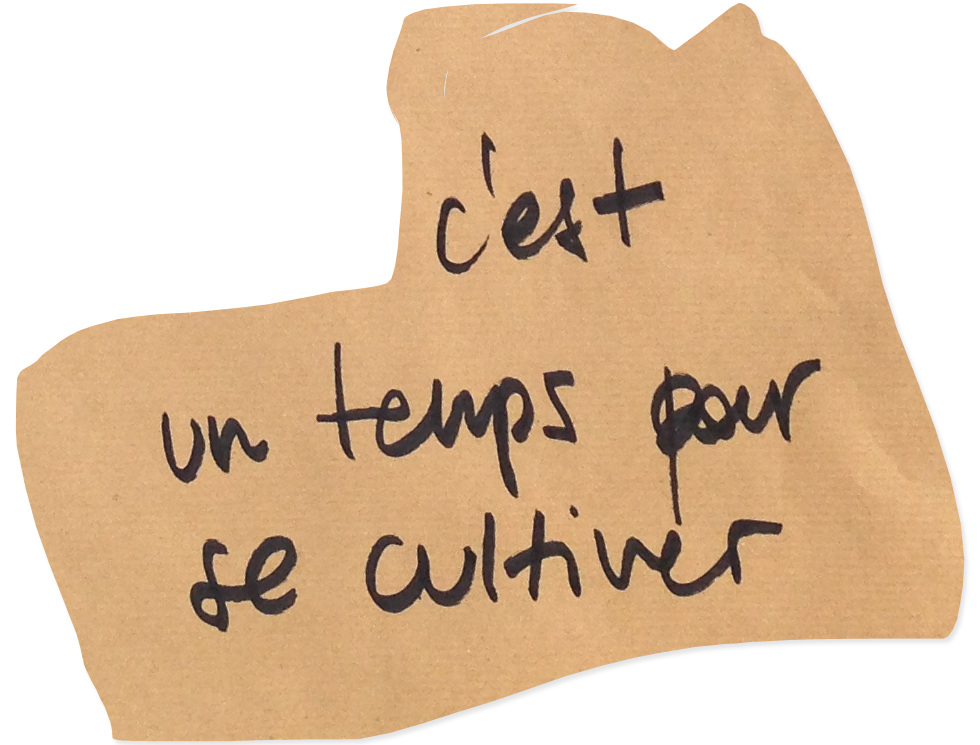 c'est
un temps pour
se cultiver